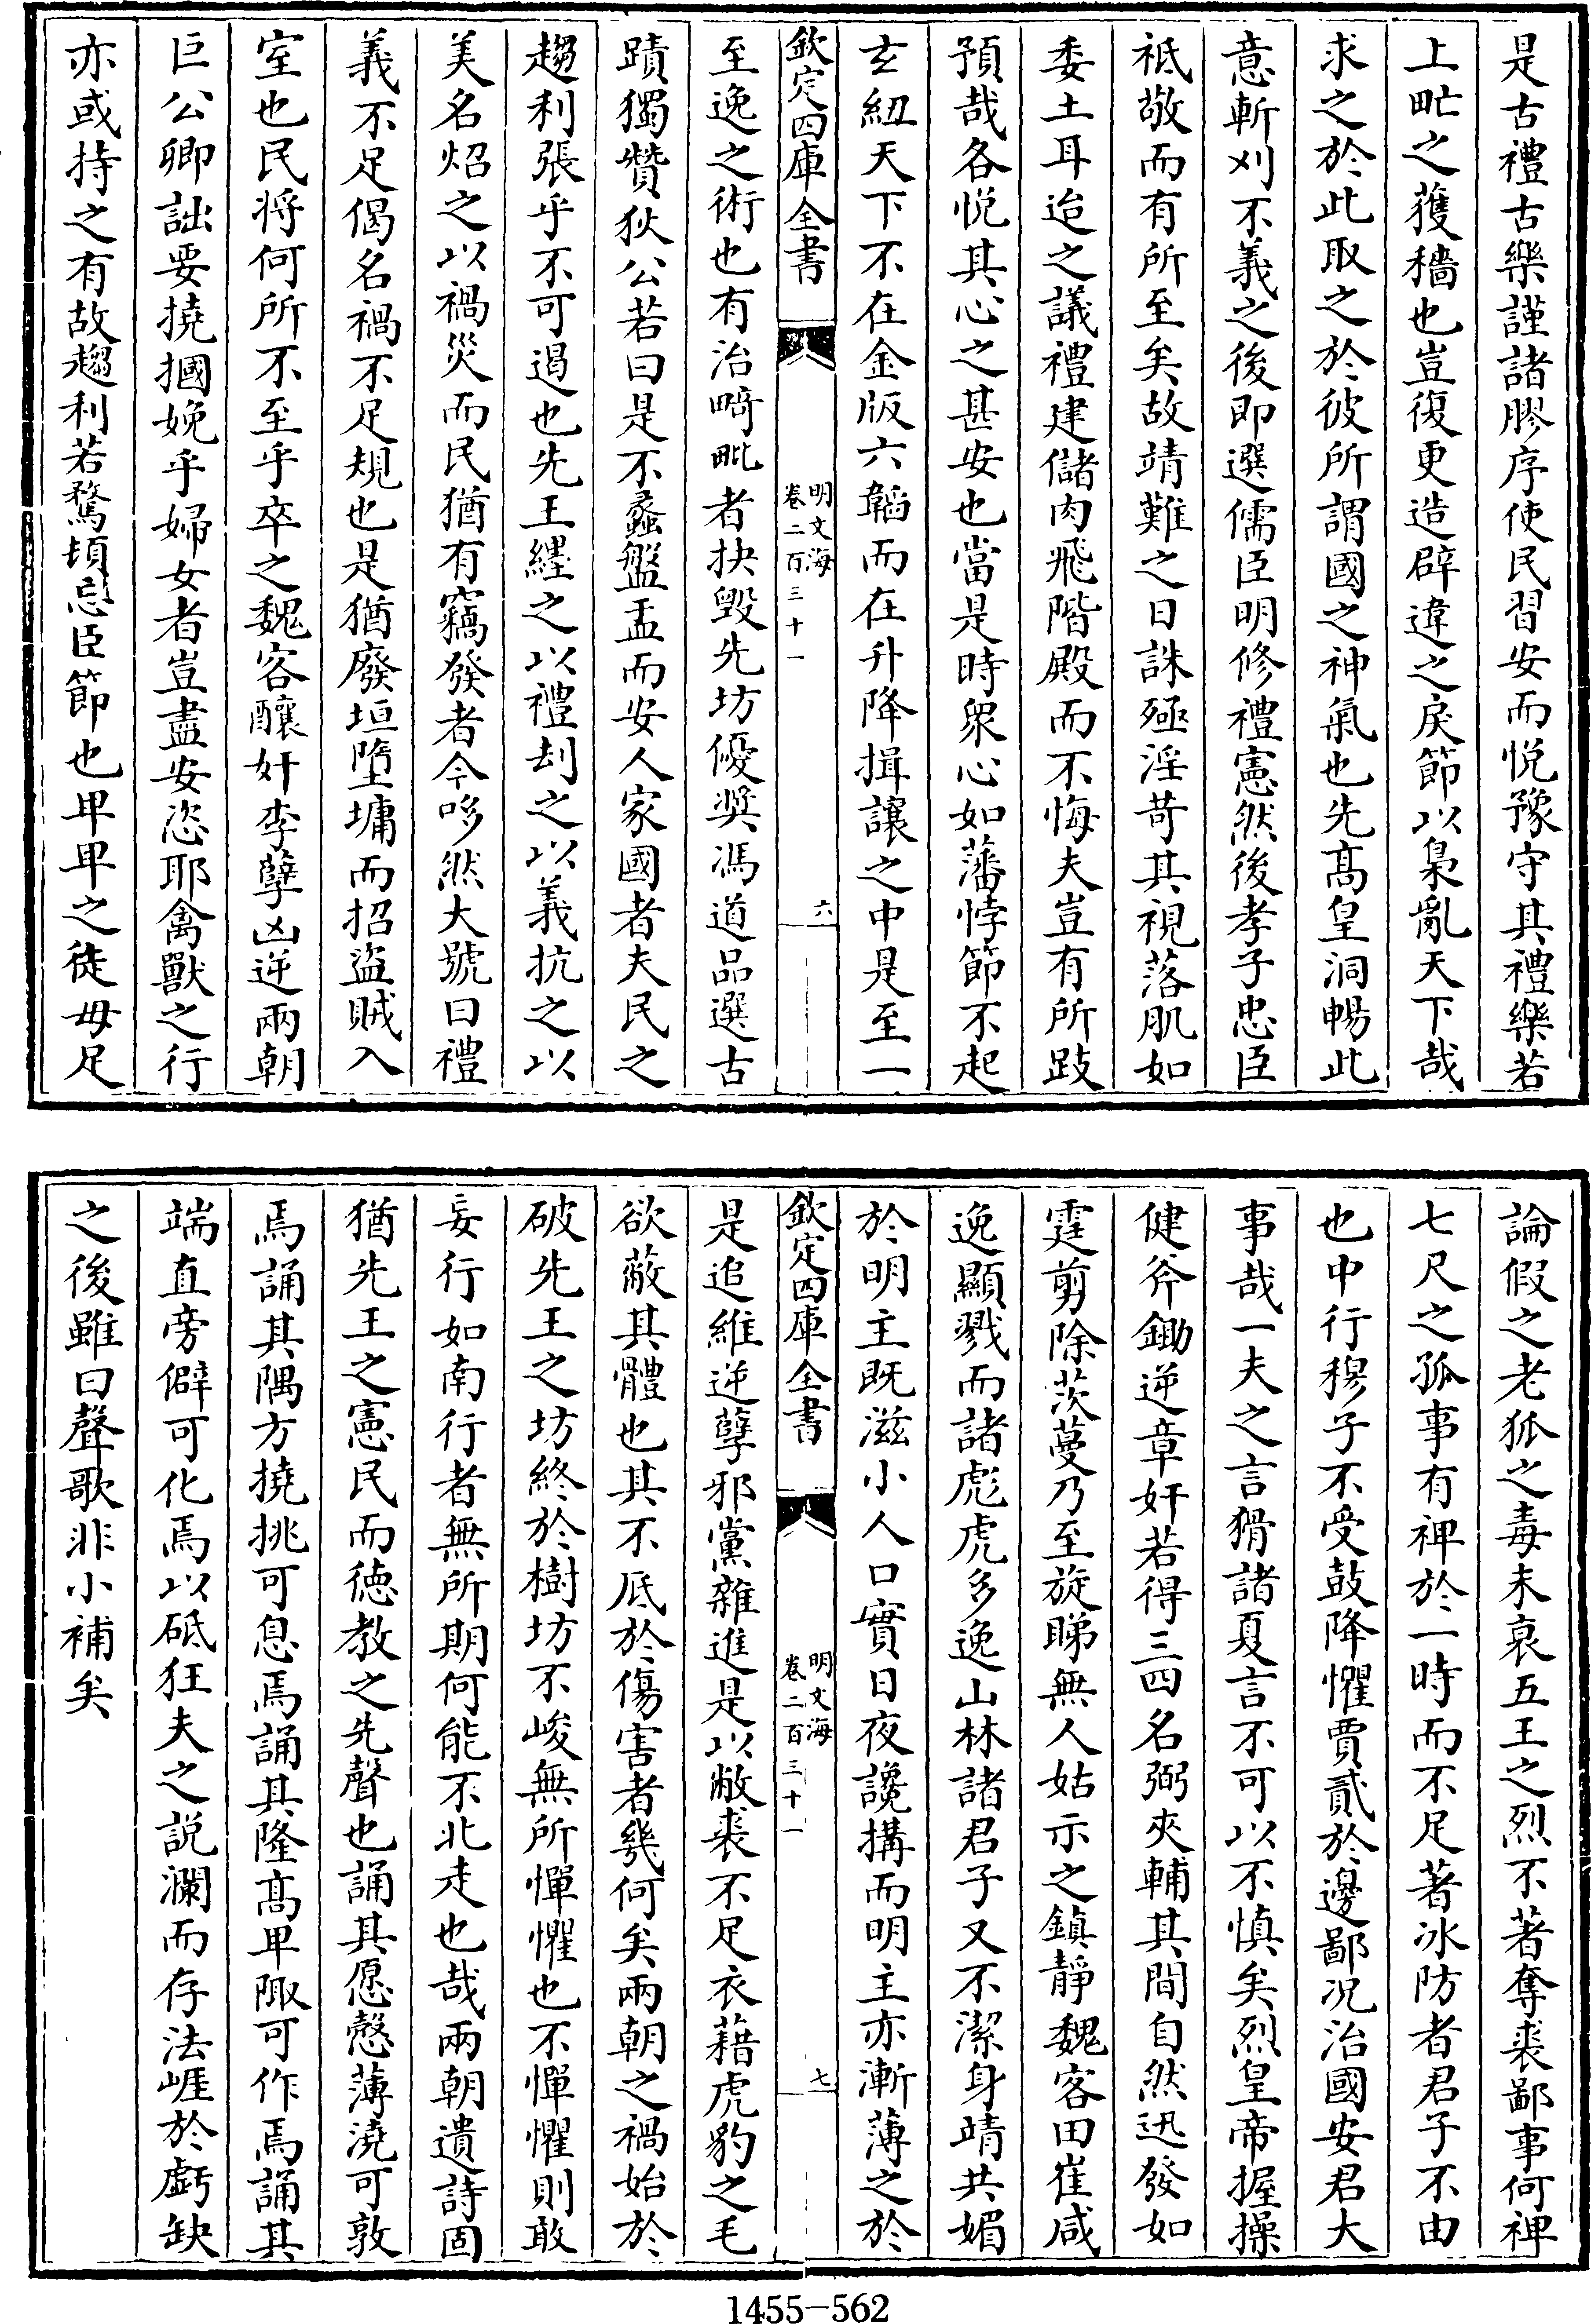 是古禮古樂謹諸膠序使民習安而悦豫守其禮樂若
上甿之獲穡也豈復更造辟違之戾節以梟亂天下哉
求之於此取之於彼所謂國之神氣也先髙皇洞暢此
意斬刈不義之後即選儒臣明修禮憲然後孝子忠臣
祗敬而有所至矣故靖難之日誅殛淫苛其視落肌如
委土耳迨之議禮建儲肉飛階殿而不悔夫豈有所跂
預哉各悦其心之甚安也當是時衆心如藩悖節不起
玄紐天下不在金版六韜而在升降揖讓之中是至一
欽定四庫全書
明文海
卷二百三十一
六
至逸之術也有治畸毗者抉毁先坊優奬馮道品選古
蹟獨贊狄公若曰是不蠡盤盂而安人家國者夫民之
趨利張乎不可遏也先王纆之以禮刦之以義抗之以
美名炤之以禍災而民猶有竊發者今哆然大號曰禮
義不足偈名禍不足規也是猶廢垣墮墉而招盜賊入
室也民將何所不至乎卒之魏客釀奸李孽凶逆兩朝
巨公卿詘要撓摑娩乎婦女者豈盡安恣耶禽獸之行
亦或持之有故趨利若騖頓忘臣節也卑卑之徒毋足
論假之老狐之毒未哀五王之烈不著奪裘鄙事何裨
七尺之孤事有裨於一時而不足著冰防者君子不由
也中行穆子不受鼓降懼賈貳於邊鄙况治國安君大
事哉一夫之言猾諸夏言不可以不慎矣烈皇帝握操
健斧鋤逆章奸若得三四名弼夾輔其間自然迅發如
霆剪除茨蔓乃至旋睇無人姑示之鎮靜魏客田崔咸
逸顯戮而諸彪虎多逸山林諸君子又不潔身靖共媚
於明主既滋小人口實日夜讒搆而明主亦漸薄之於
欽定四庫全書
明文海
卷二百三十一
七
是追維逆孽邪黨雜進是以敝裘不足衣藉虎豹之毛
欲蔽其體也其不底於傷害者幾何矣兩朝之禍始於
破先王之坊終於樹坊不峻無所憚懼也不憚懼則敢
妄行如南行者無所期何能不北走也哉兩朝遺詩固
猶先王之憲民而徳教之先聲也誦其愿慤薄澆可敦
焉誦其隅方撓挑可息焉誦其隆髙卑陬可作焉誦其
端直旁僻可化焉以砥狂夫之説瀾而存法崕於虧缺
之後雖曰聲歌非小補矣
1455—562